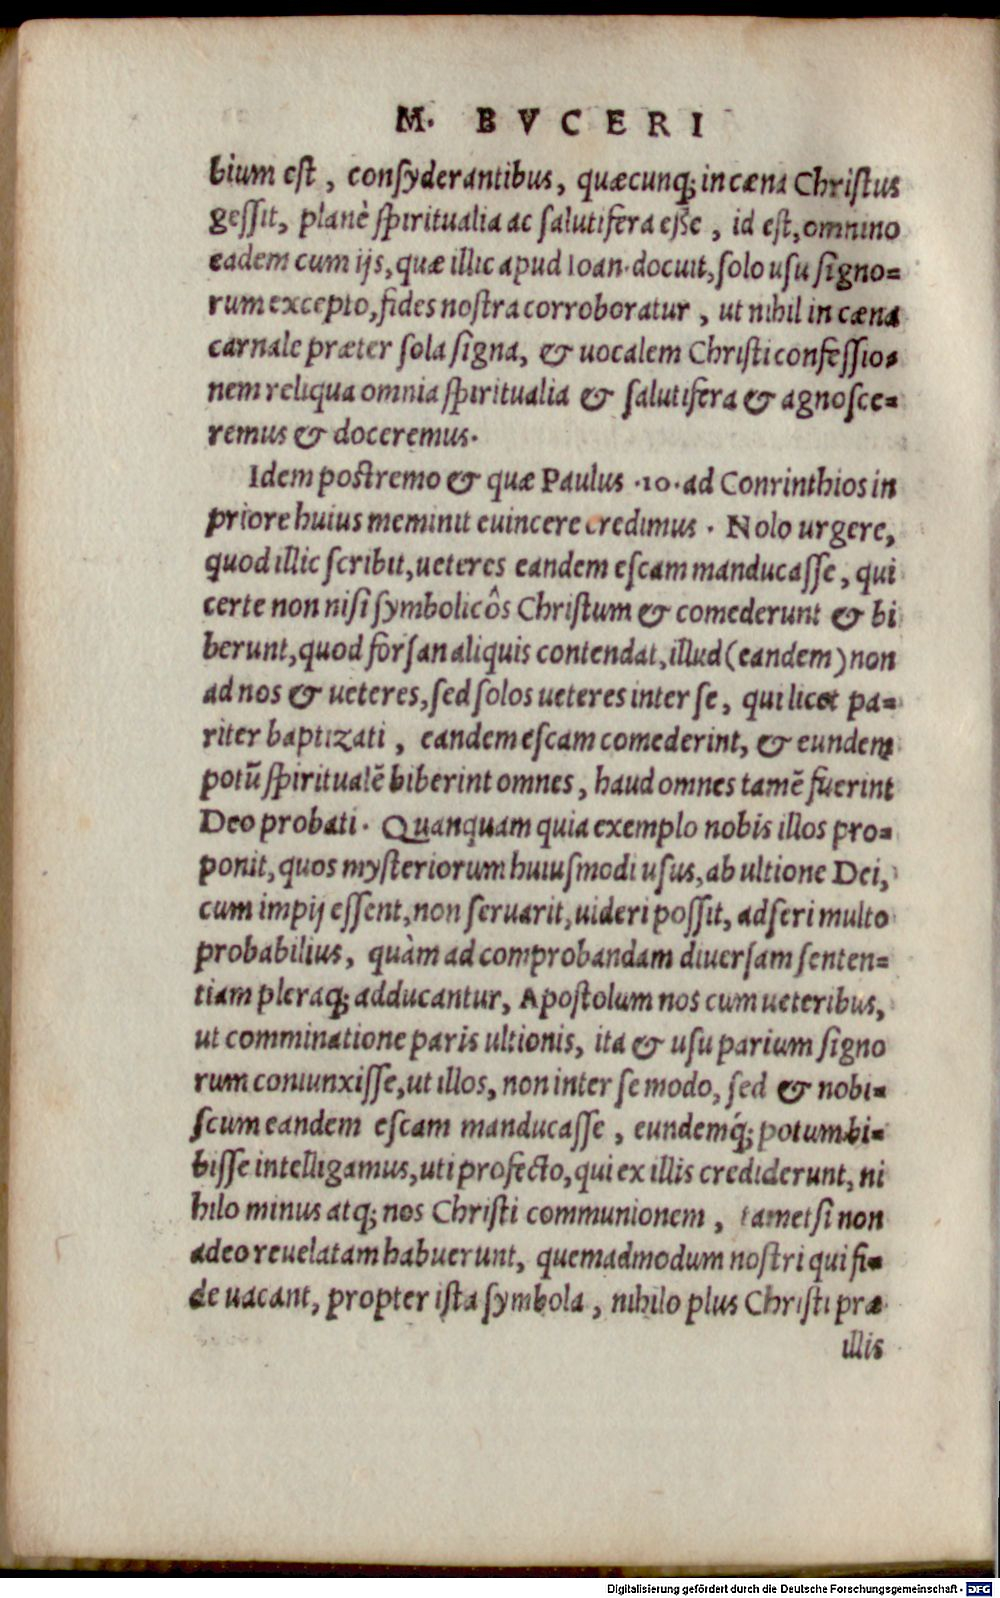 M. BVCERI
bium est, consyderantibus, quæcunq; in cæna Christus
gessit, planè spiritualia ac salutifera esse, id est, omnino
eadem cum ijs, quæ illic apud Ioan. docuit, solo usu signo=
rum excepto, fides nostra corroboratur, ut nihil in cæna
carnale præter sola signa, & uocalem Christi confessio=
nem reliqua omnia spiritualia & salutifera & agnosce=
remus & doceremus.
Idem postremo & quæ Paulus .10. ad Conrinthios in
priore huius meminit euincere credimus. Nolo urgere,
quod illic scribit, ueteres eandem escam manducasse, qui
certe non nisi symbolicôs Christum & comederunt & bi
berunt, quod forsan aliquis contendat, illud (eandem) non
ad nos & ueteres, sed solos ueteres inter se, qui licet pa=
riter baptizati, eandem escam comederint, & eundem
potū spiritualē biberint omnes, haud omnes tamē fuerint
Deo probati. Quanquam quia exemplo nobis illos pro=
ponit, quos mysteriorum huiusmodi usus, ab ultione Dei,
cum impij essent, non seruarit, uideri possit, adseri multo
probabilius, quàm ad comprobandam diuersam senten=
tiam pleraq; adducantur, Apostolum nos cum ueteribus,
ut comminatione paris ultionis, ita & usu parium signo
rum coniunxisse, ut illos, non inter se modo, sed & nobi=
scum eandem escam manducasse, eundemq́; potum bi=
bisse intelligamus, uti profecto, qui ex illis crediderunt, ni
hilo minus atq; nos Christi communionem, tametsi non
adeo reuelatam habuerunt, quemadmodum nostri qui fi=
de uacant, propter ista symbola, nihilo plus Christi præ
illis
Digitalisierung gefördert durch die Deutsche Forschungsgemeinschaft - DFG